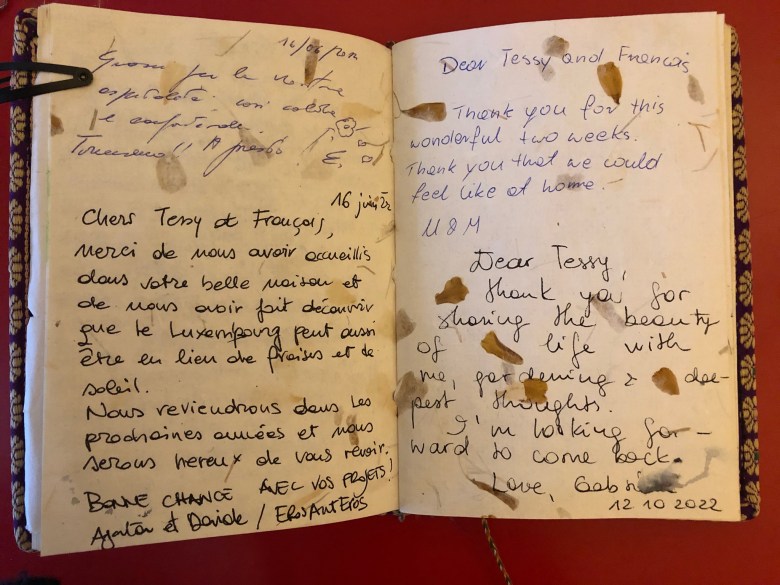 14/06/2022
Grazie per la vostra
ospitalità. così calorosa
e confortevole.
Torneremo!! A presto
E.
16 juin 22
Chers Tessy et François,
merci de nous avoir accueillis
dans votre belle maison et
de nous avoir fait découvrir
que le Luxembourg peut aussi
être en lieu de fraises et de
soleil.
Nous reviendrons dans les
prochaines années et nous
serons hereux de vous revoir.
BONNE CHANCE AVEC VOS PROJETS!
et Davide / EROSANTEROS
Dear Tessy and Francois
Thank you for this
wonderful two weeks.
Thank you that we could
feel like at home.
M & M
Dear Tessy,
thank you for
sharing the beauty
of life with
me, gardening & dee-
pest thoughts.
I'm looking for-
ward to come back.
Love,
12 10 2022